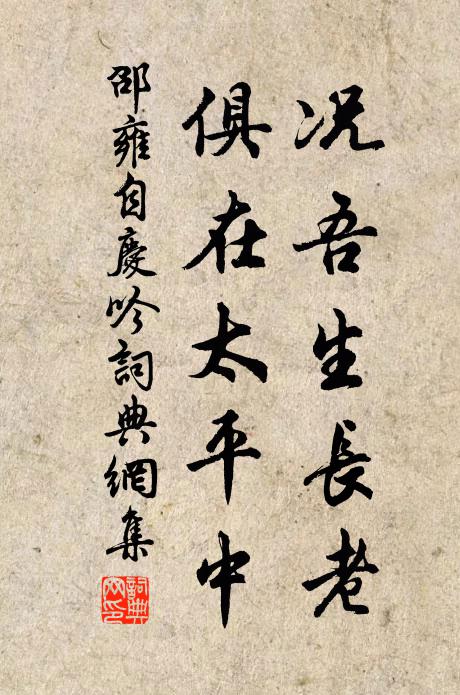 况吾生長老
俱在太平中
邵雍自慶吟詞典網集
詞典
网印